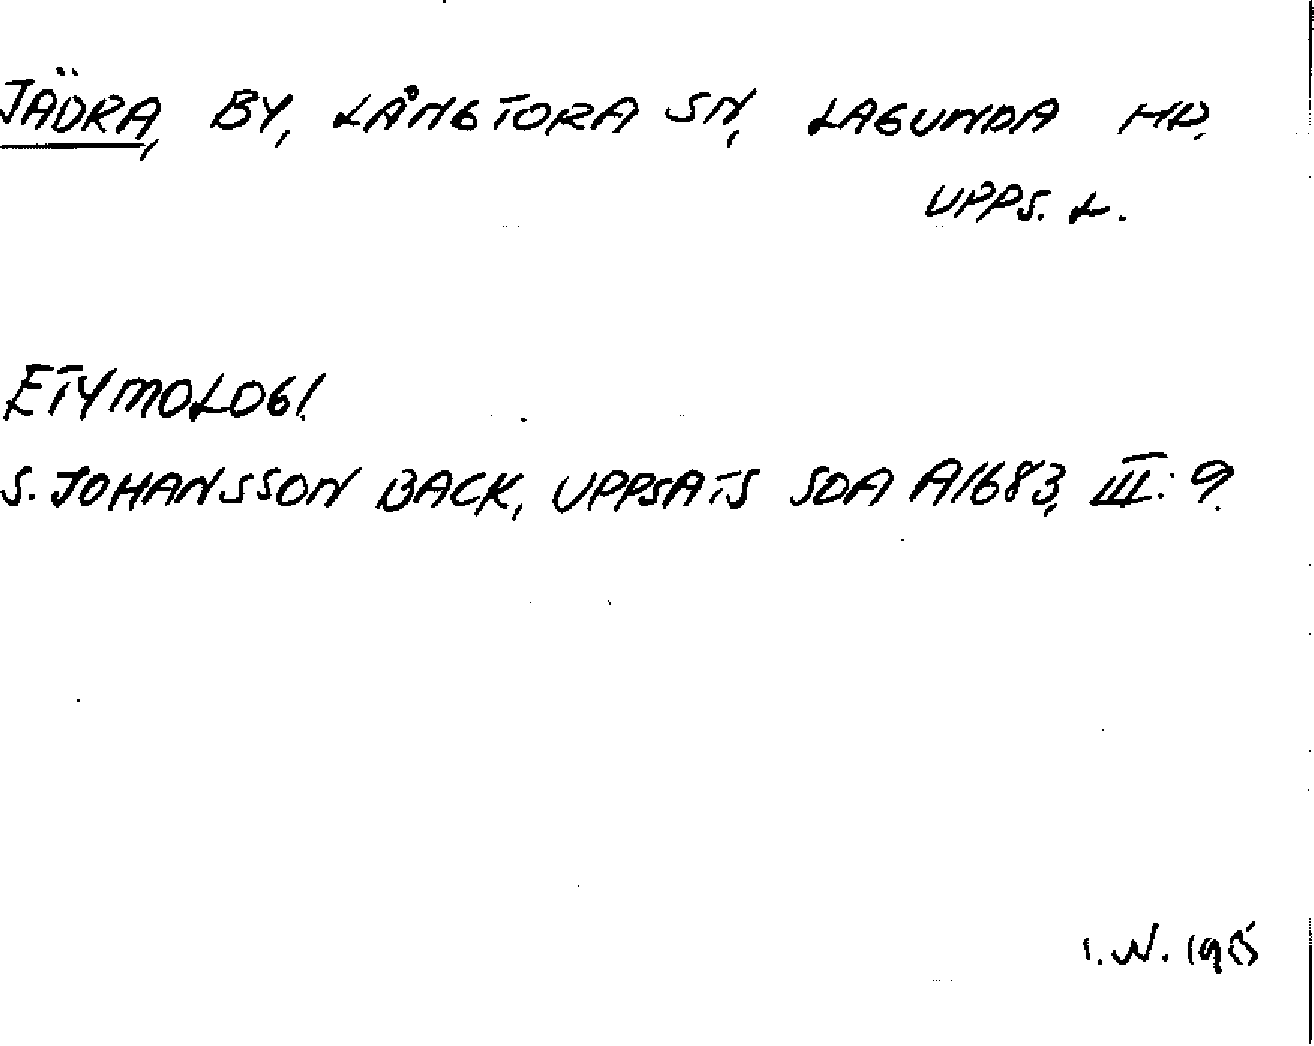 JÄDRA, BY, LÅNGTORA SN, LAGUNDA HD,
UPPS. L.
ETYMOLOGI.
S. JOHANSSON BACK, UPPSATS SOA A1683, III: 9.
I. W.